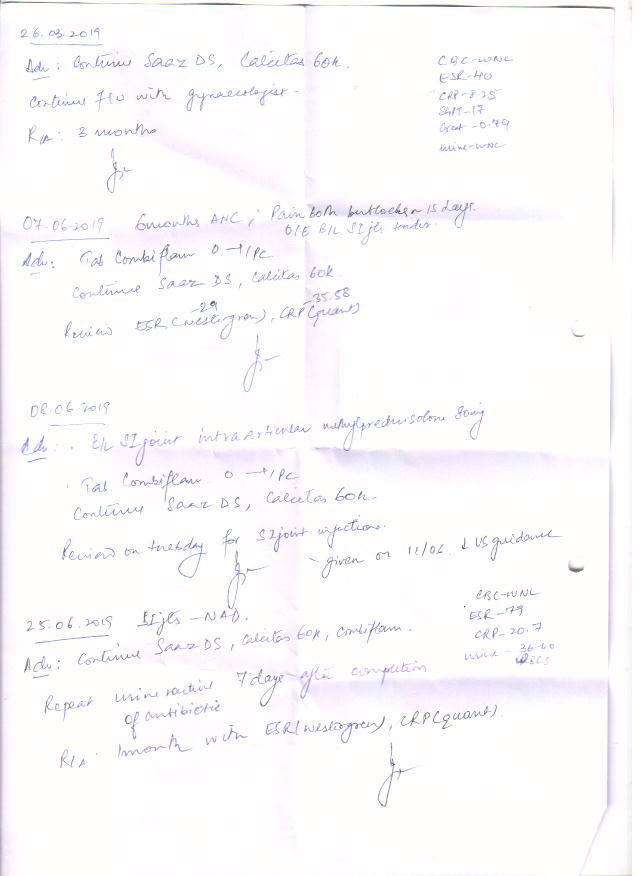 26.03.2019
Adv: Continue Saaz DS, Calcitas 60k.
CBC-WNL
ESR-40
Continue F/U with gynaecologist.
CRP-8.25
SGPT-17
R/A: 3 months
Creat-0.79
Urine-WNL
07.06.2019 6months ANC, Pain both buttocks x 15 days.
O/E B/L SI jts tender.
Adv: Tab Combiflam 0 → 1 PC
Continue Saaz DS, Calcitas 60k.
-29 -35.58
Review ESR (Westergren), CRP (quant)
08.06.2019
Adv: . B/L SI joint intraarticular methylprednisolone 80mg
. Tab Combiflam 0 → 1 PC
Continue Saaz DS, Calcitas 60k.
Review on tuesday for SI joint injections.
- given on 11/06 ↓ US guidance
25.06.2019 SI jts - NAD.
CBC-WNL
ESR-79
Adv: Continue Saaz DS, Calcitas 60k, Combiflam.
CRP-20.7
urine - 36-40
Repeat urine routine 7 days after completion
of antibiotic
R/A: 1 month with ESR (Westergren), CRP (quant).